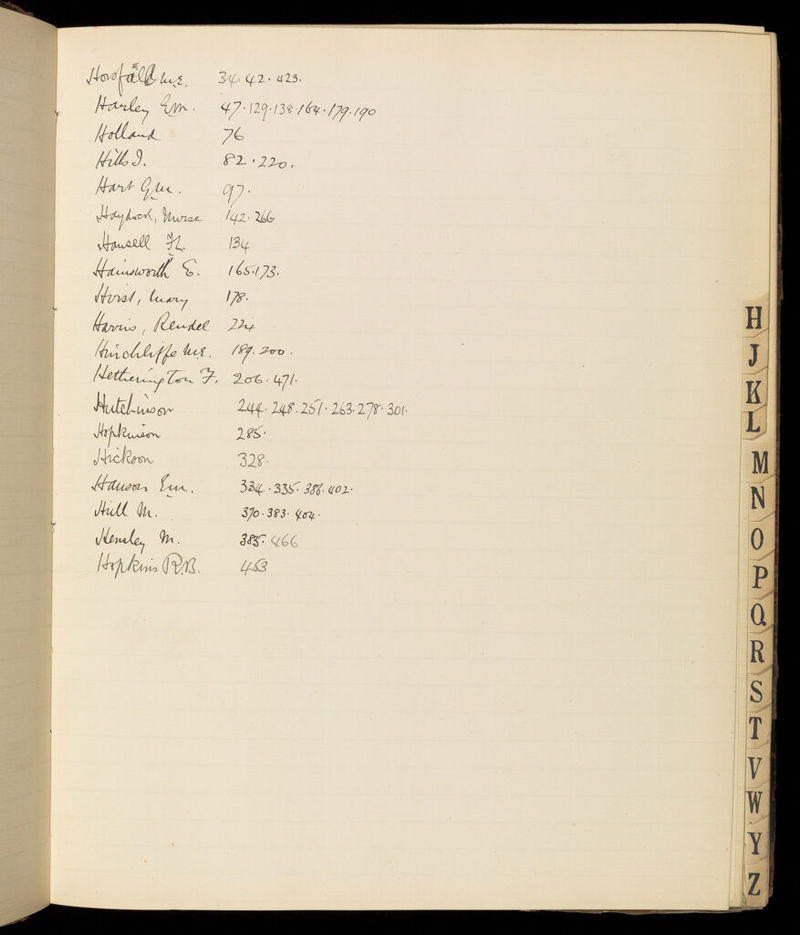 Horsfall M.E. 34. 42. 423.
Harley E.M. 47. 129. 138. 164. 179. 190
Holland 76
Hills I. 82. 220.
Hart G.M. 97.
Haydock, Nurse 142. 266
Hansell 134
Hainsworth E. 165. 173.
Hirst, Mary 178.
Harris, Rendel 224
Hinchliffe M.E. 189. 200.
Hetherington F. 206. 471.
Hutchinson 244. 248. 251. 263. 278. 301.
Hopkinson 285.
Hickson 328.
Hanson Em. 334. 335. 386. 402.
Hull M. 370. 383. 404.
Hensley M. 385. 466
Hopkins R.B. 453
H
J
K
L
M
N
O
P
Q
R
S
T
V
W
Y
Z